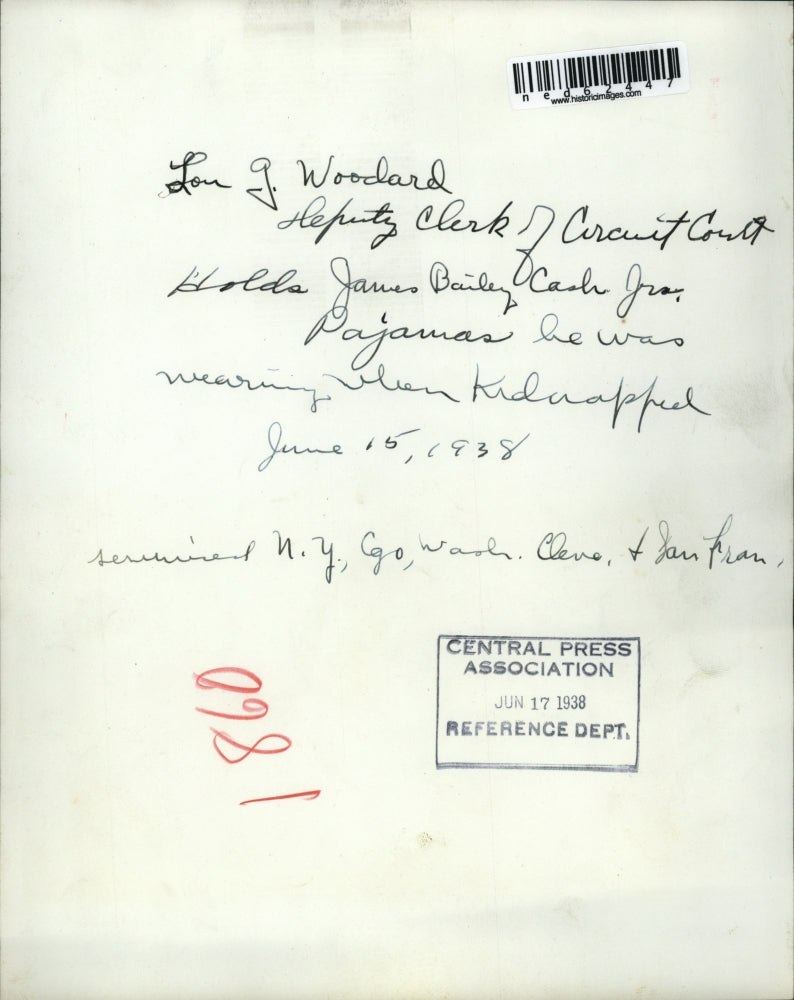 ned62447
www.historicimages.com
Lon G. Woodard
Deputy Clerk of Circuit Court
Holds James Bailey Cash Jrs.
Pajamas he was
wearing when Kidnapped
June 15, 1938
serviced N.Y., Cgo, Wash. Cleve, + San Fran.
CENTRAL PRESS
ASSOCIATION
JUN 17 1938
REFERENCE DEPT.
1860